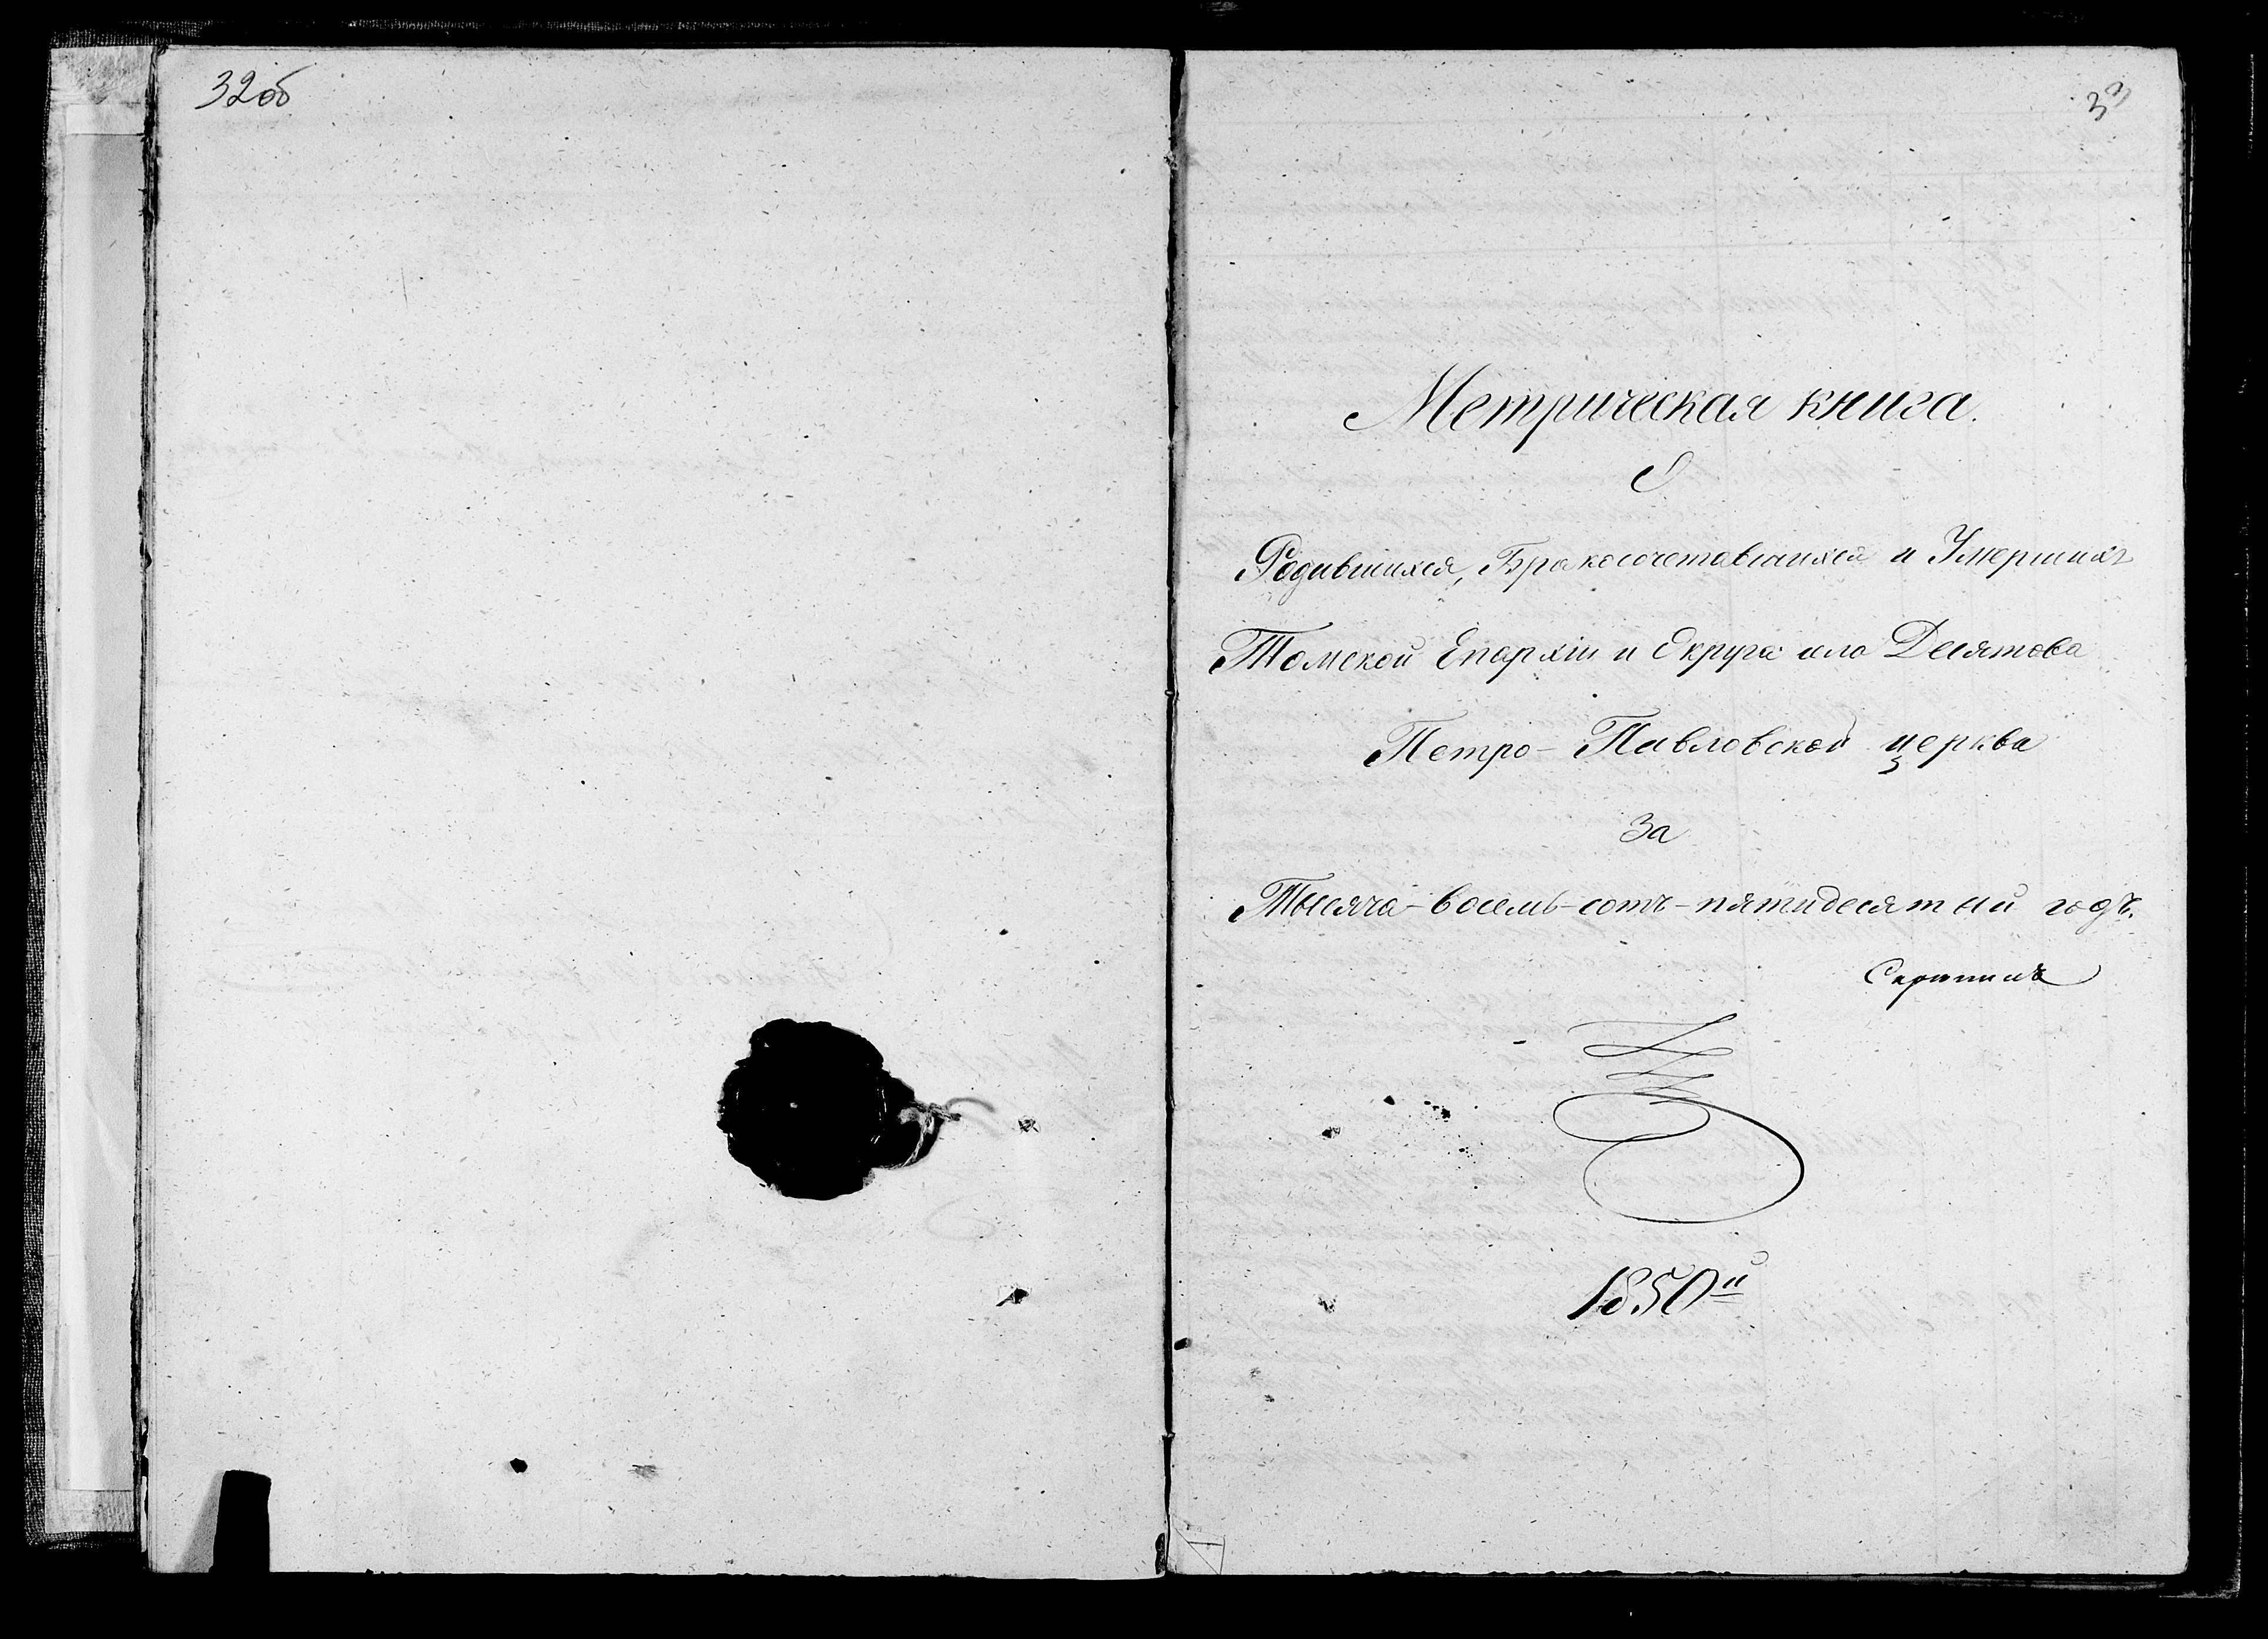 32об
33
Метрическая книга.
О
Родившихся, Бракосочетавшихся и Умершихъ
Томской Епархіи и Округа села Десятова
Петро-Павловской церква
За
Тысяча-восемь-сотъ-пятидесятый годъ.
1850й